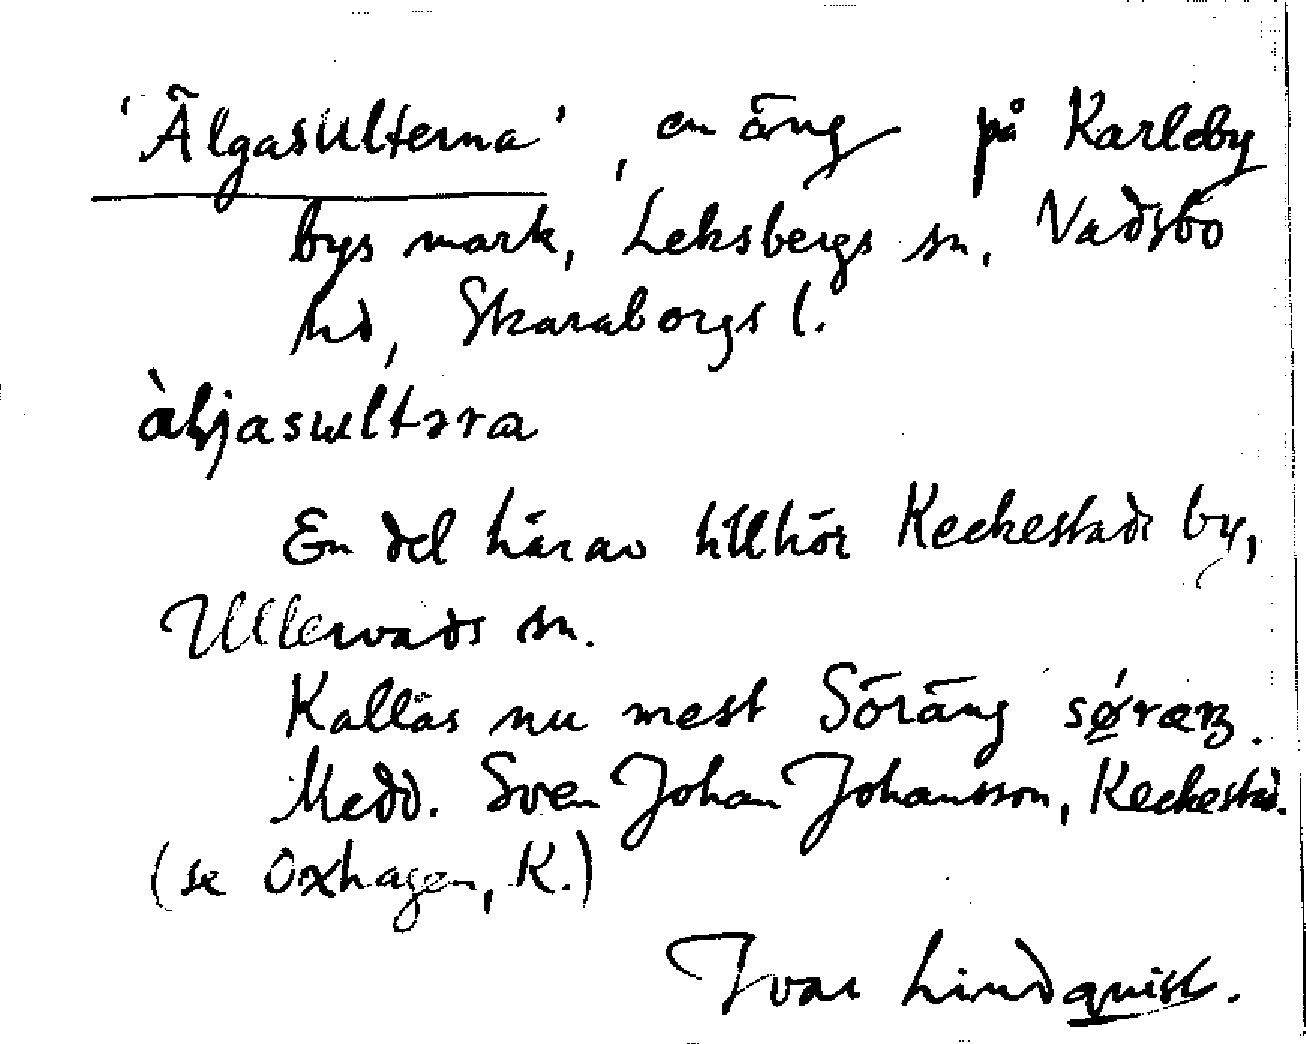 'Älgasulterna', en äng på Karleby
bys mark, Leksbergs sn, Vadsbo
hd, Skaraborgs l.
àljasultəra
En del härav tillhör Keckestads by,
Ullervads sn.
Kallas nu mest Söräng
Medd. Sven Johan Johansson, Keckestad.
(se Oxhagen, K.)
Ivar Lindquist.